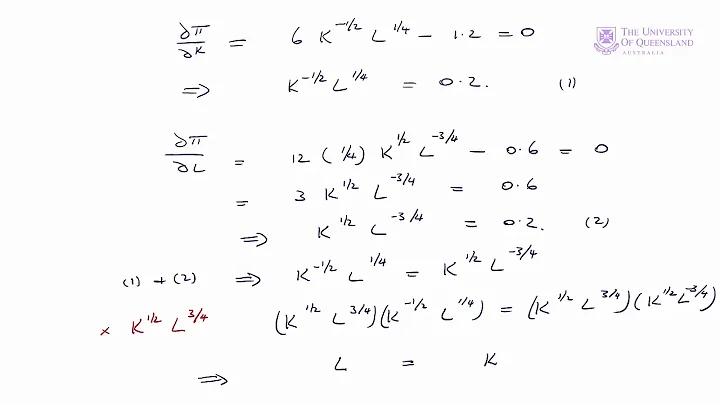 THE UNIVERSITY
OF QUEENSLAND
AUSTRALIA
∂π/∂K = 6 K^-1/2 L^1/4 - 1.2 = 0
⇒ K^-1/2 L^1/4 = 0.2. (1)
∂π/∂L = 12 (1/4) K^1/2 L^-3/4 - 0.6 = 0
= 3 K^1/2 L^-3/4 = 0.6
⇒ K^1/2 L^-3/4 = 0.2. (2)
(1) + (2) ⇒ K^-1/2 L^1/4 = K^1/2 L^-3/4
× K^1/2 L^3/4 (K^1/2 L^3/4)(K^-1/2 L^1/4) = (K^1/2 L^3/4)(K^1/2 L^-3/4)
⇒ L = K